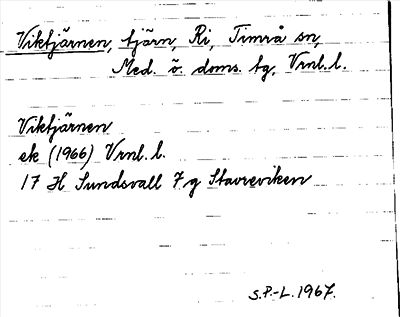 Viktjärnen, tjärn, Ri, Timrå sn,
Med. ö. doms. tg, Vrnl. l.
Viktjärnen
ek (1966) Vrnl. l.
17 H Sundsvall 7 g Stavreviken
S.P.-L. 1967.